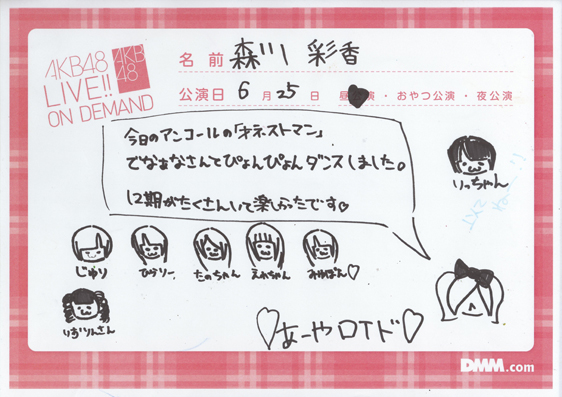 AKB48
LIVE!!
ON DEMAND
AKB
48
名前 森川 彩香
公演日 6月25日 昼公演・おやつ公演・夜公演
今日のアンコールの「オネストマン」
でなぁなさんとぴょんぴょんダンスしました。
12期がたくさんいて楽しかったです♡
いっちゃん
じゅり
ひらりー
たのちゃん
えれちゃん
みゆぽん♡
いずりんさん
♡あーやロイド♡
DMM.com